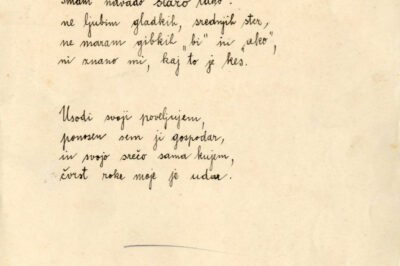 imam navado staro
ne ljubim gladkih, srednjih ster,
ne maram gibkih „bi" in „ako",
ni znano mi, kaj to je kes.
Usodi svoji poveljujem,
ponosen sem ji gospodar,
in svojo srečo sama kujem,
čvrst roke moje je udar.